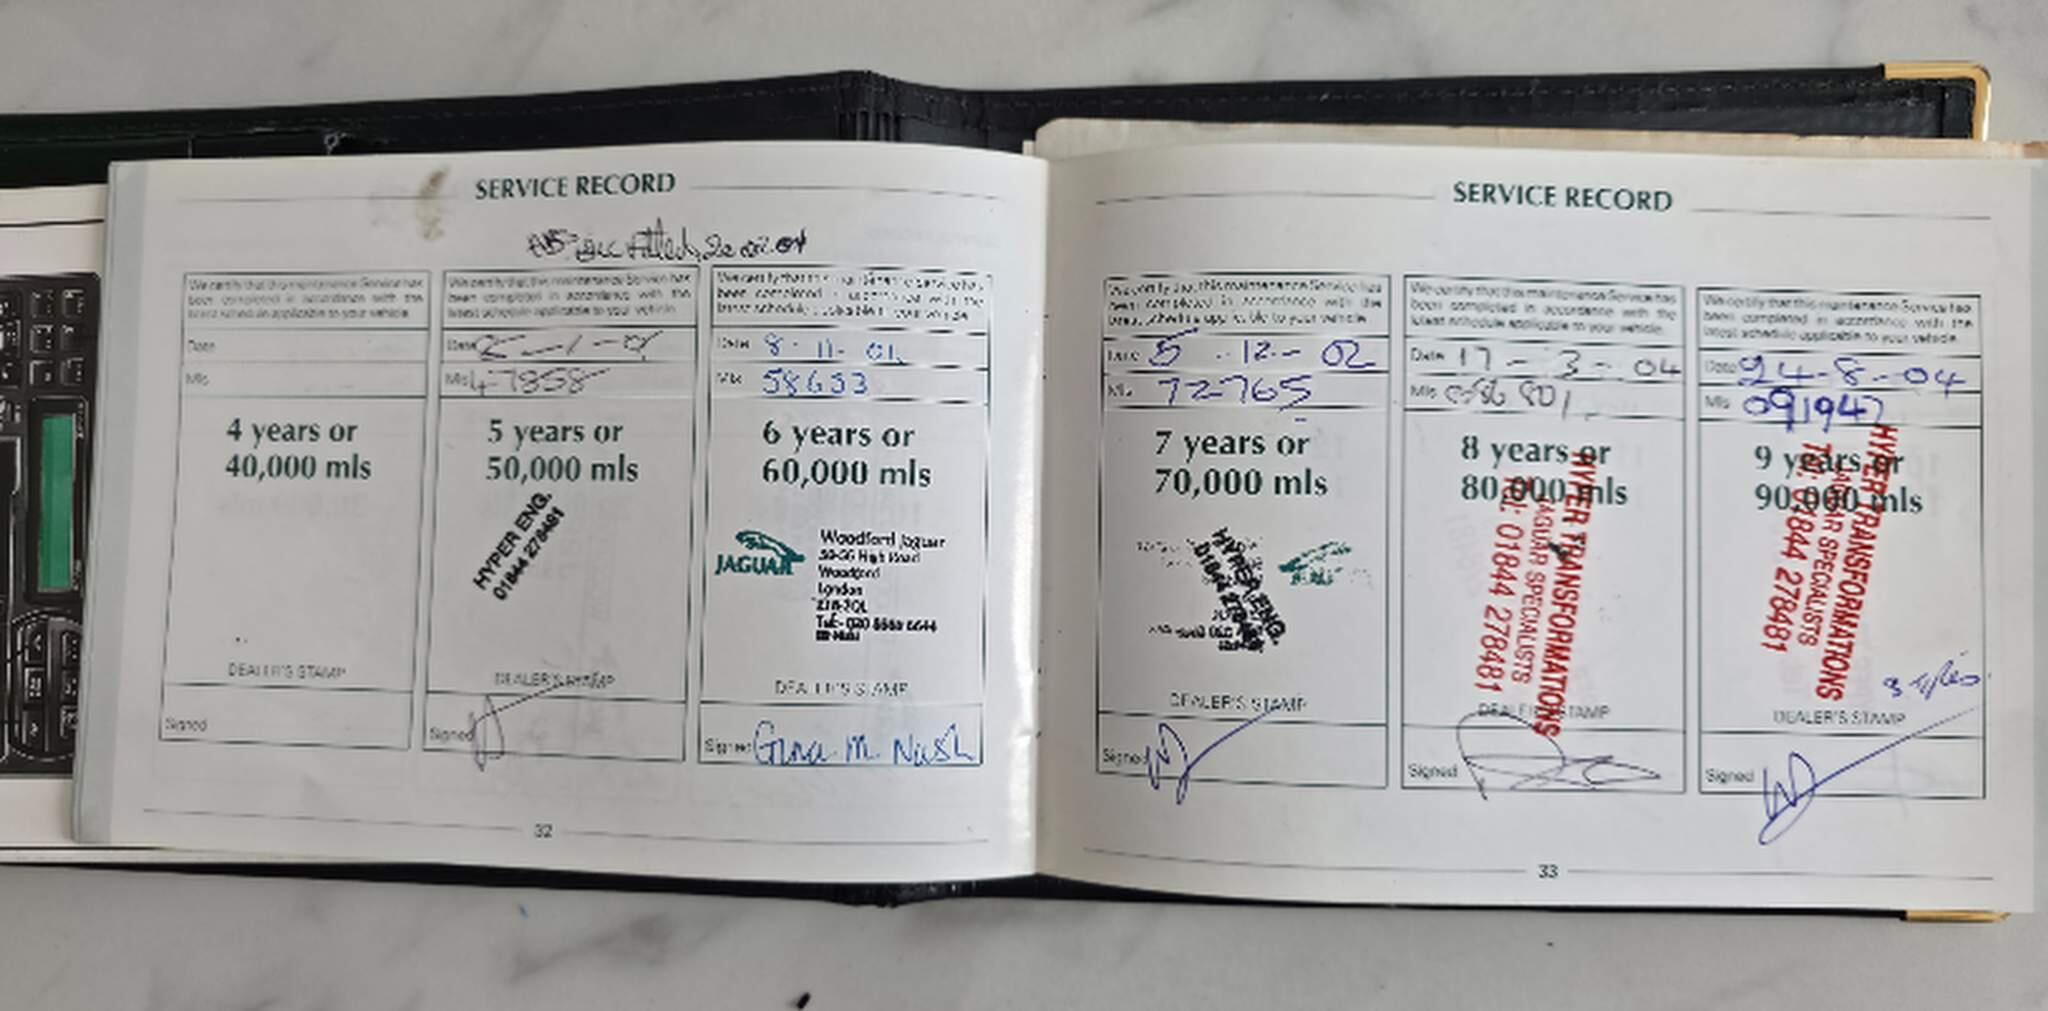 SERVICE RECORD
We certify that this maintenance Service has
been completed in accordance with the
latest schedule applicable to your vehicle.
Date
Mls
4 years or
40,000 mls
DEALER'S STAMP
Signed
We certify that this maintenance Service has
been completed in accordance with the
latest schedule applicable to your vehicle.
Date
Mls 47858
5 years or
50,000 mls
HYPER ENG.
01844 278481
DEALER'S STAMP
Signed
We certify that this maintenance Service has
been completed in accordance with the
latest schedule applicable to your vehicle.
Date 8-11-01
Mls 58633
6 years or
60,000 mls
JAGUAR
Woodford Jaguar
High Road
Woodford
London
DEALER'S STAMP
Signed Gina M. Nash
32
SERVICE RECORD
We certify that this maintenance Service has
been completed in accordance with the
latest schedule applicable to your vehicle.
Date 5-12-02
Mls 72765
7 years or
70,000 mls
HYPER ENG.
01844 278481
DEALER'S STAMP
Signed
We certify that this maintenance Service has
been completed in accordance with the
latest schedule applicable to your vehicle.
Date 17-3-04
Mls 086801
8 years or
80,000 mls
HYPER TRANSFORMATIONS
JAGUAR SPECIALISTS
Tel: 01844 278481
DEALER'S STAMP
Signed
We certify that this maintenance Service has
been completed in accordance with the
latest schedule applicable to your vehicle.
Date 24-8-04
Mls 091947
9 years or
90,000 mls
HYPER TRANSFORMATIONS
JAGUAR SPECIALISTS
Tel: 01844 278481
DEALER'S STAMP
Signed
33